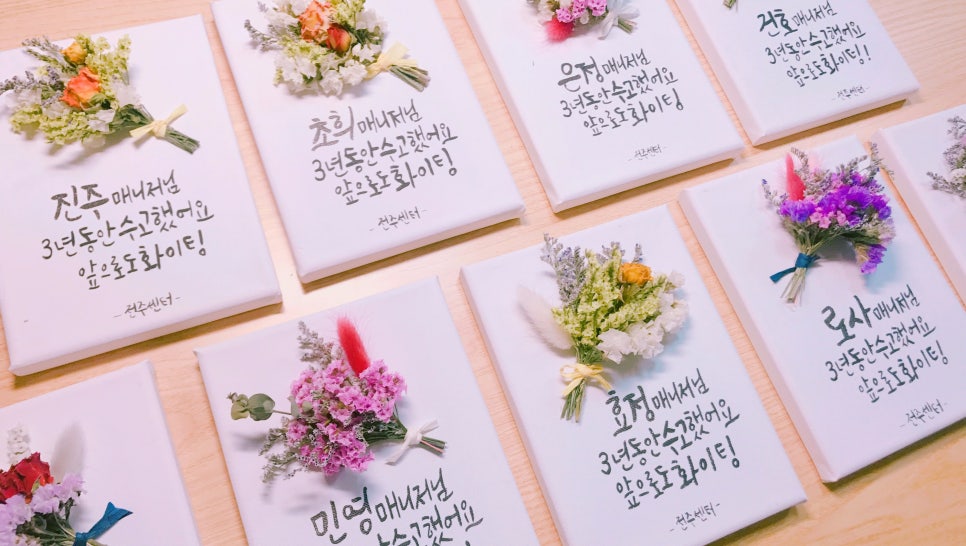 진주 매니저님
3년동안 수고했어요
앞으로도 화이팅
-전주센터-
초희 매니저님
3년동안 수고했어요
앞으로도 화이팅!
-전주센터-
은정 매니저님
3년동안 수고했어요
앞으로도 화이팅
-전주센터-
건호 매니저님
3년동안 수고했어요
앞으로도 화이팅!
-전주센터-
민영 매니저님
수고했어요
효정 매니저님
3년동안 수고했어요
앞으로도 화이팅
-전주센터-
로사 매니저님
3년동안 수고했어요
앞으로도 화이팅
-전주센터-